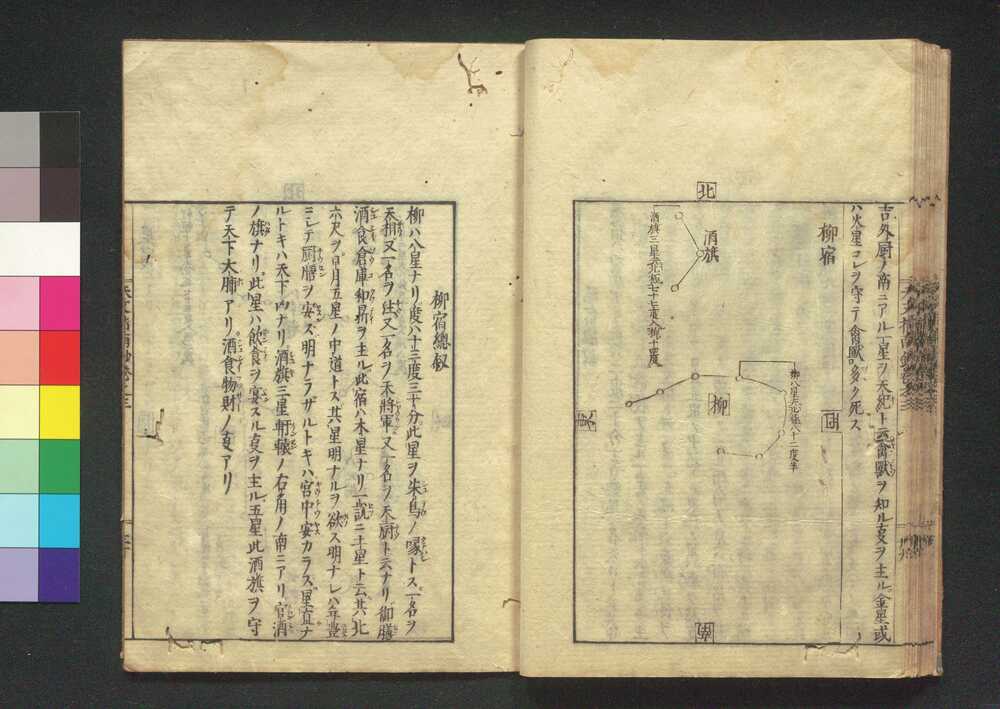 吉外厨ノ南ニアル一星ヲ天紀ト云禽獣ヲ知ル㕝ヲ主ル金星或
ハ火星コレヲ守テ禽獣多ク死ス
柳宿
北
酒旗
酒旗三星
柳
柳八星
南
柳宿總叙
柳ハ八星ナリ度ハ十三度三十分此星ヲ朱鳥ノ喙トス一名ヲ
天相又一名ヲ注又一名ヲ天將軍又一名ヲ天厨ト云ナリ御膳
酒食倉庫和
ヲ主ル此宿ハ木星ナリ一説ニ土星ト云其北
六尺ヲ日月五星ノ中道トス其星明ナルヲ欲ス明ナレハ年豊
ニシテ厨膳ヲ安ス明ナラザルトキハ宮中安カラス星直ナ
ルトキハ天下
ナリ酒旗三星軒轅ノ右角ノ南ニアリ官酒
ノ旗ナリ此星ハ飲食ヲ宴スル㕝ヲ主ル五星此酒旗ヲ守
テ天下大酺アリ酒食物財ノ㕝アリ